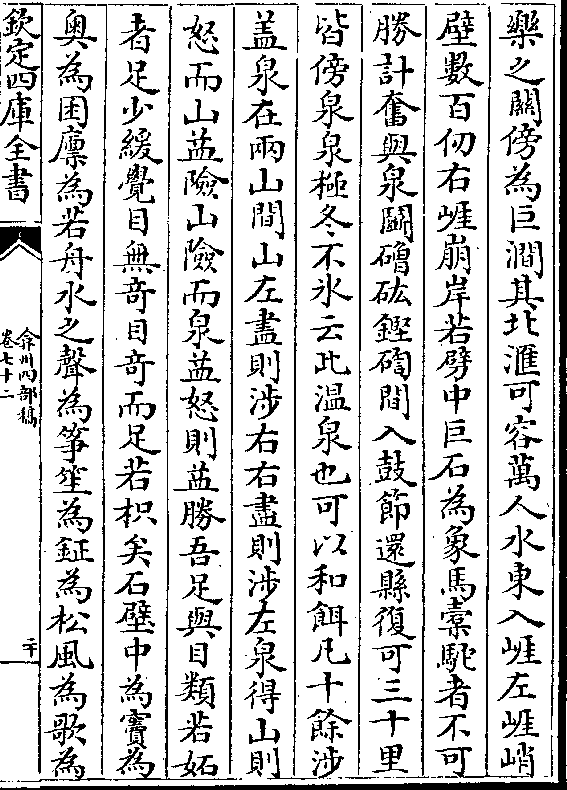 樂之關傍為巨澗其北滙可容萬人水東入崕左崕峭
壁數百仞右崕崩岸若劈中巨石為象馬橐駝者不可
勝計奮與泉鬭磳砿鏗磤間入鼓節還縣復可三十里
皆傍泉泉極冬不氷云此温泉也可以和餌凡十餘涉
盖泉在兩山間山左盡則涉右右盡則涉左泉得山則
怒而山益險山險而泉益怒則益勝吾足與目類若妬
者足少緩覺目無竒目竒而足若枳矣石壁中為竇為
奥為囷廪為若舟水之聲為筝筑為鉦為松風為歌為
欽定四庫全書
弇州四部稿
卷七十二
二十